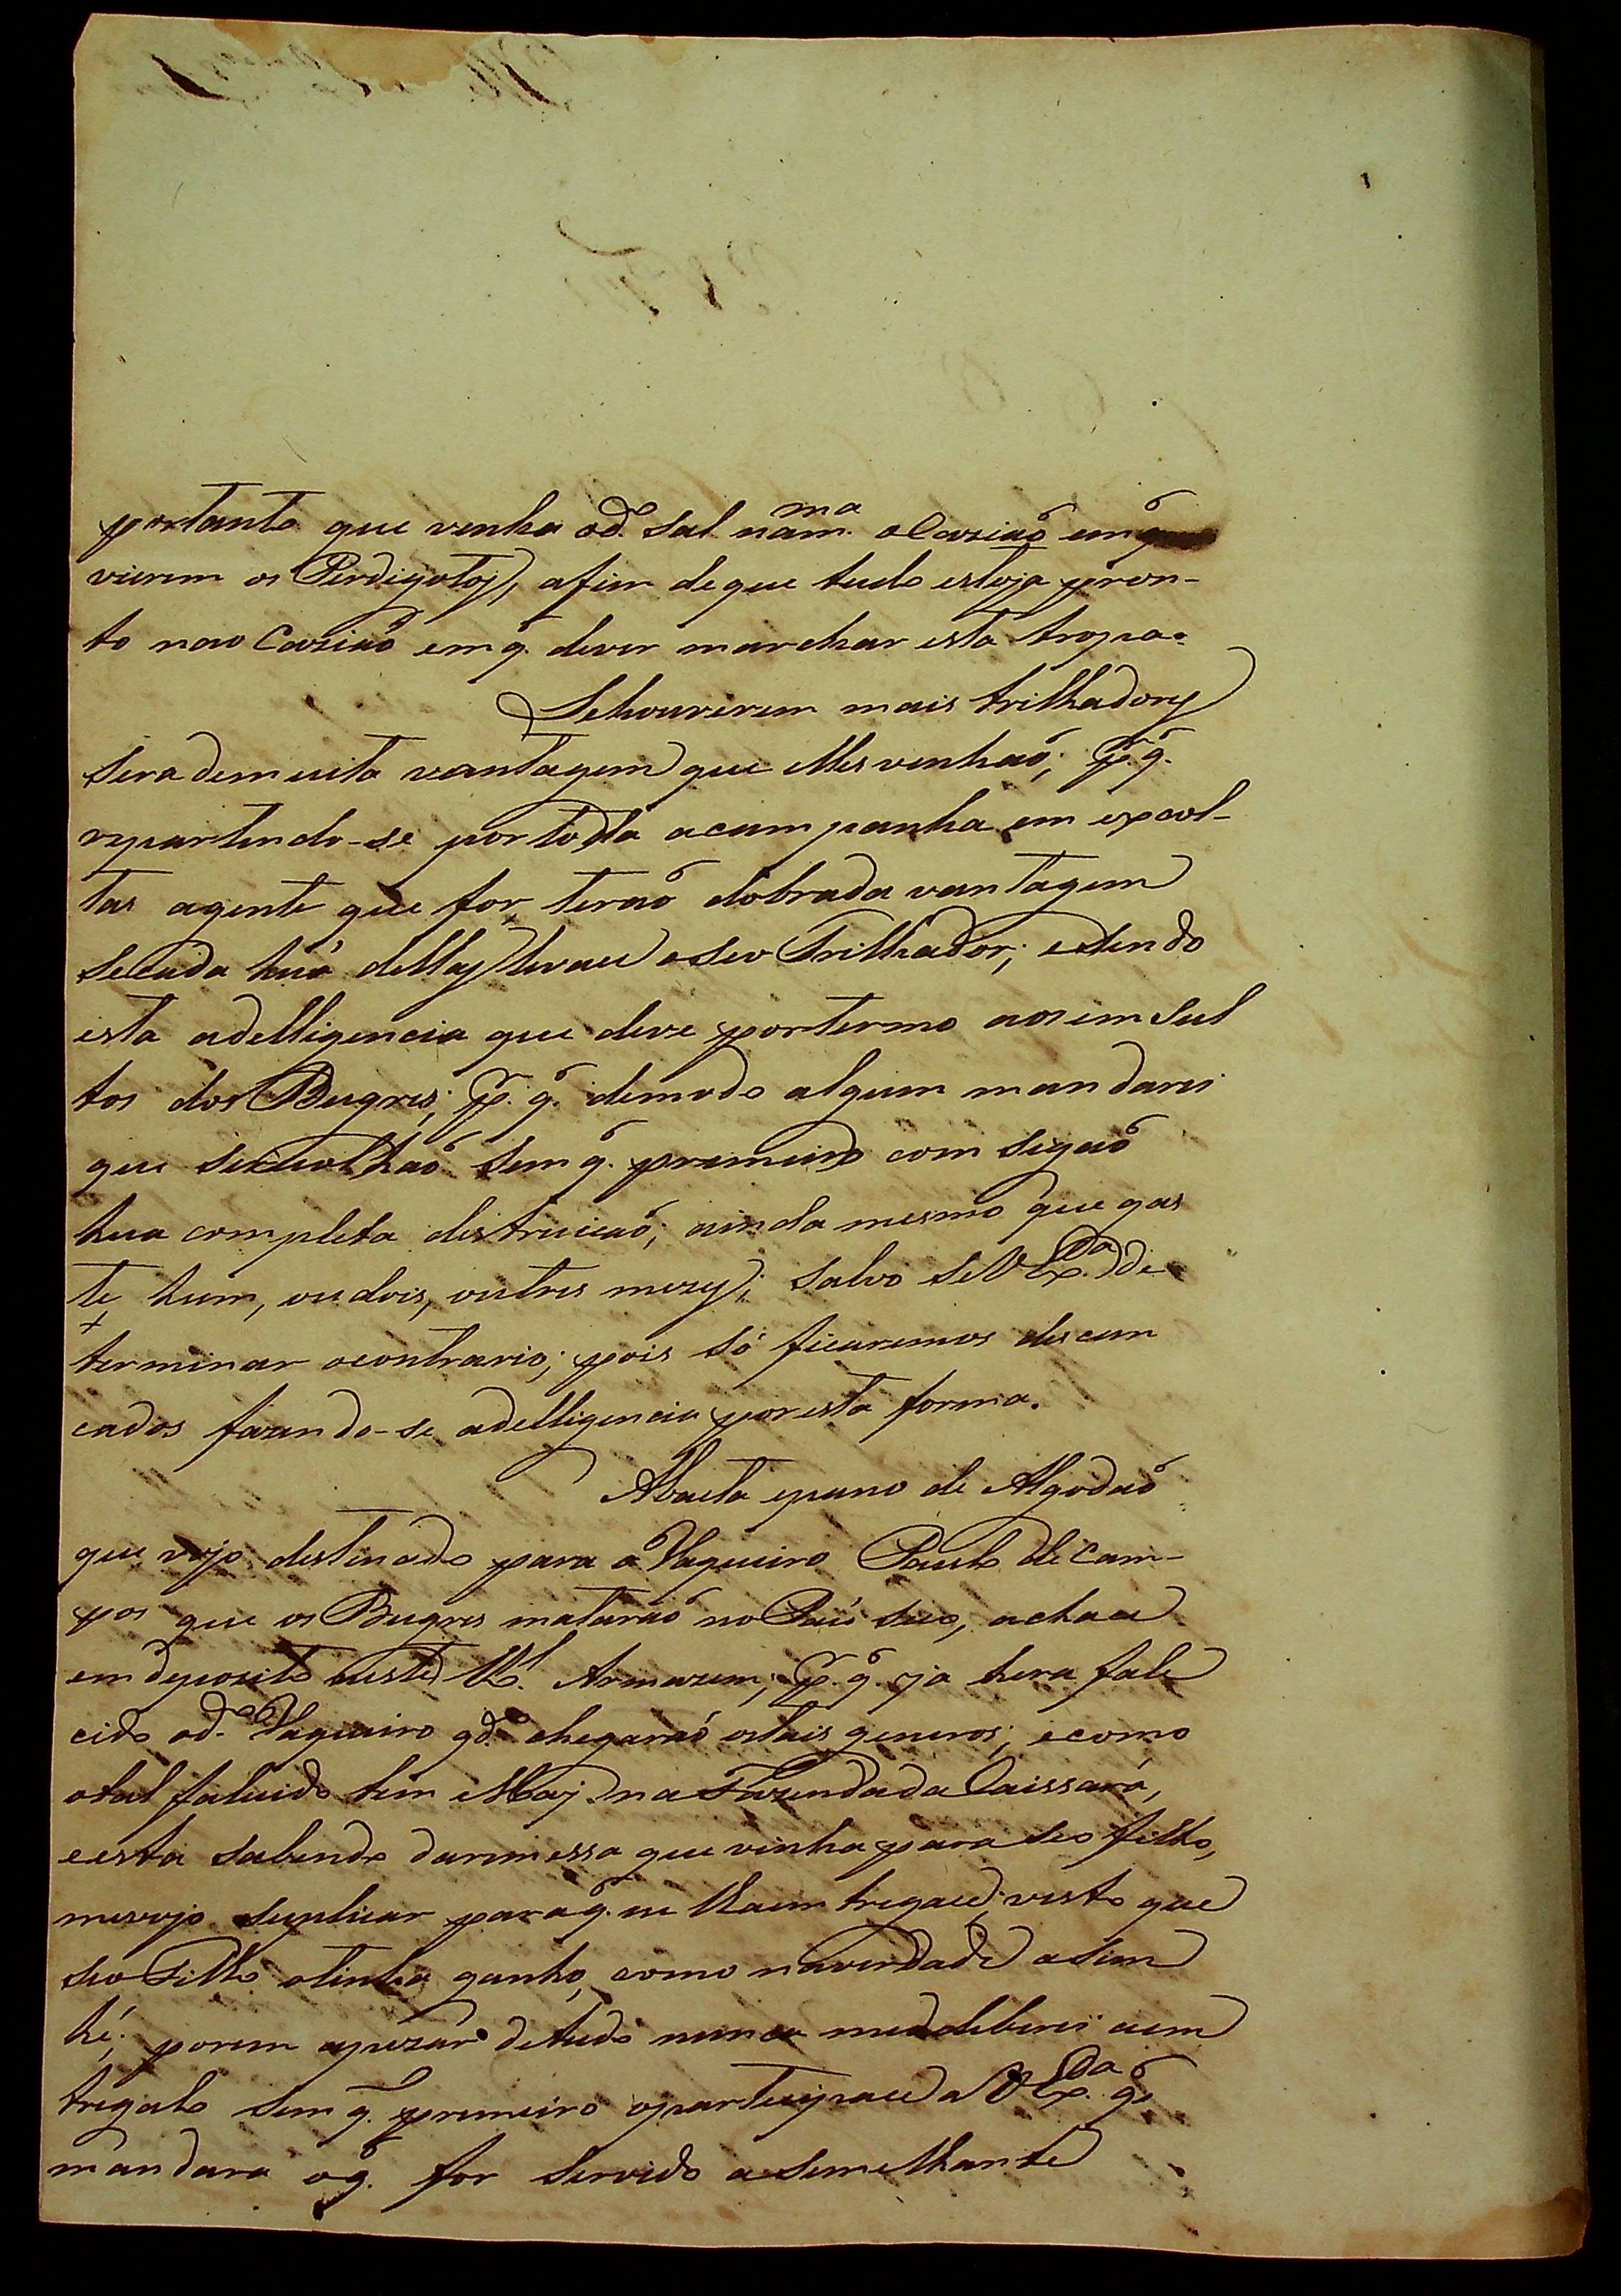 portanto que venha o d.º Sal na m.ma ocaziaõ em q̃
vierem os Perdigotos, afim de que tudo esteja pron-
to na o Caziaõ em q̃. dever marchar esta tropa.
Se houverem mais trilhadores
sera de muita vantagem que elles venhaõ; p.r q̃.
repartindo-se por toda a campanha em excol-
tas agente que for, teraõ dobrada vantagem
se cada huã dellas levace o seo Trilhador; e sendo
esta adelligencia que deve por termo aos imsul
tos dos Bugres; p.r q̃. de modo algum mandarei
que se recolhaõ sem q̃. primeiro comsigaõ
hua completa distruiçaõ; ainda mesmo que gas
te hum, ou dois, ou tres mezes; salvo se V Ex.ca de
terminar o contrario; pois só ficaremos descan
cados fazendo-se adelligencia por esta forma.
Abaeta e pano de Algodaõ
que vejo destinado para o Vaqueiro Paulo de Cam-
pos que os Bugres mataraõ no Páu seco, achace
em depozito neste R.l Armazem; p.r q̃. ja hera fale
cido o d.º Vaqueiro q.do chegaraõ os tais generos; e como
o tal falecido tem Mãy na Fazenda da Caissara,
e esta sabendo da remessa que vinha para seo filho,
me veyo suplicar para q̃. eu lha em tregace; visto que
seo Filho o tinha ganho, como na verdade asim
hé; porem apezar de tudo nunca me deliberei a em
tregalo sem q̃. primeiro o participace a V Ex.ca q̃.
mandara o q̃. for servido a semelhante